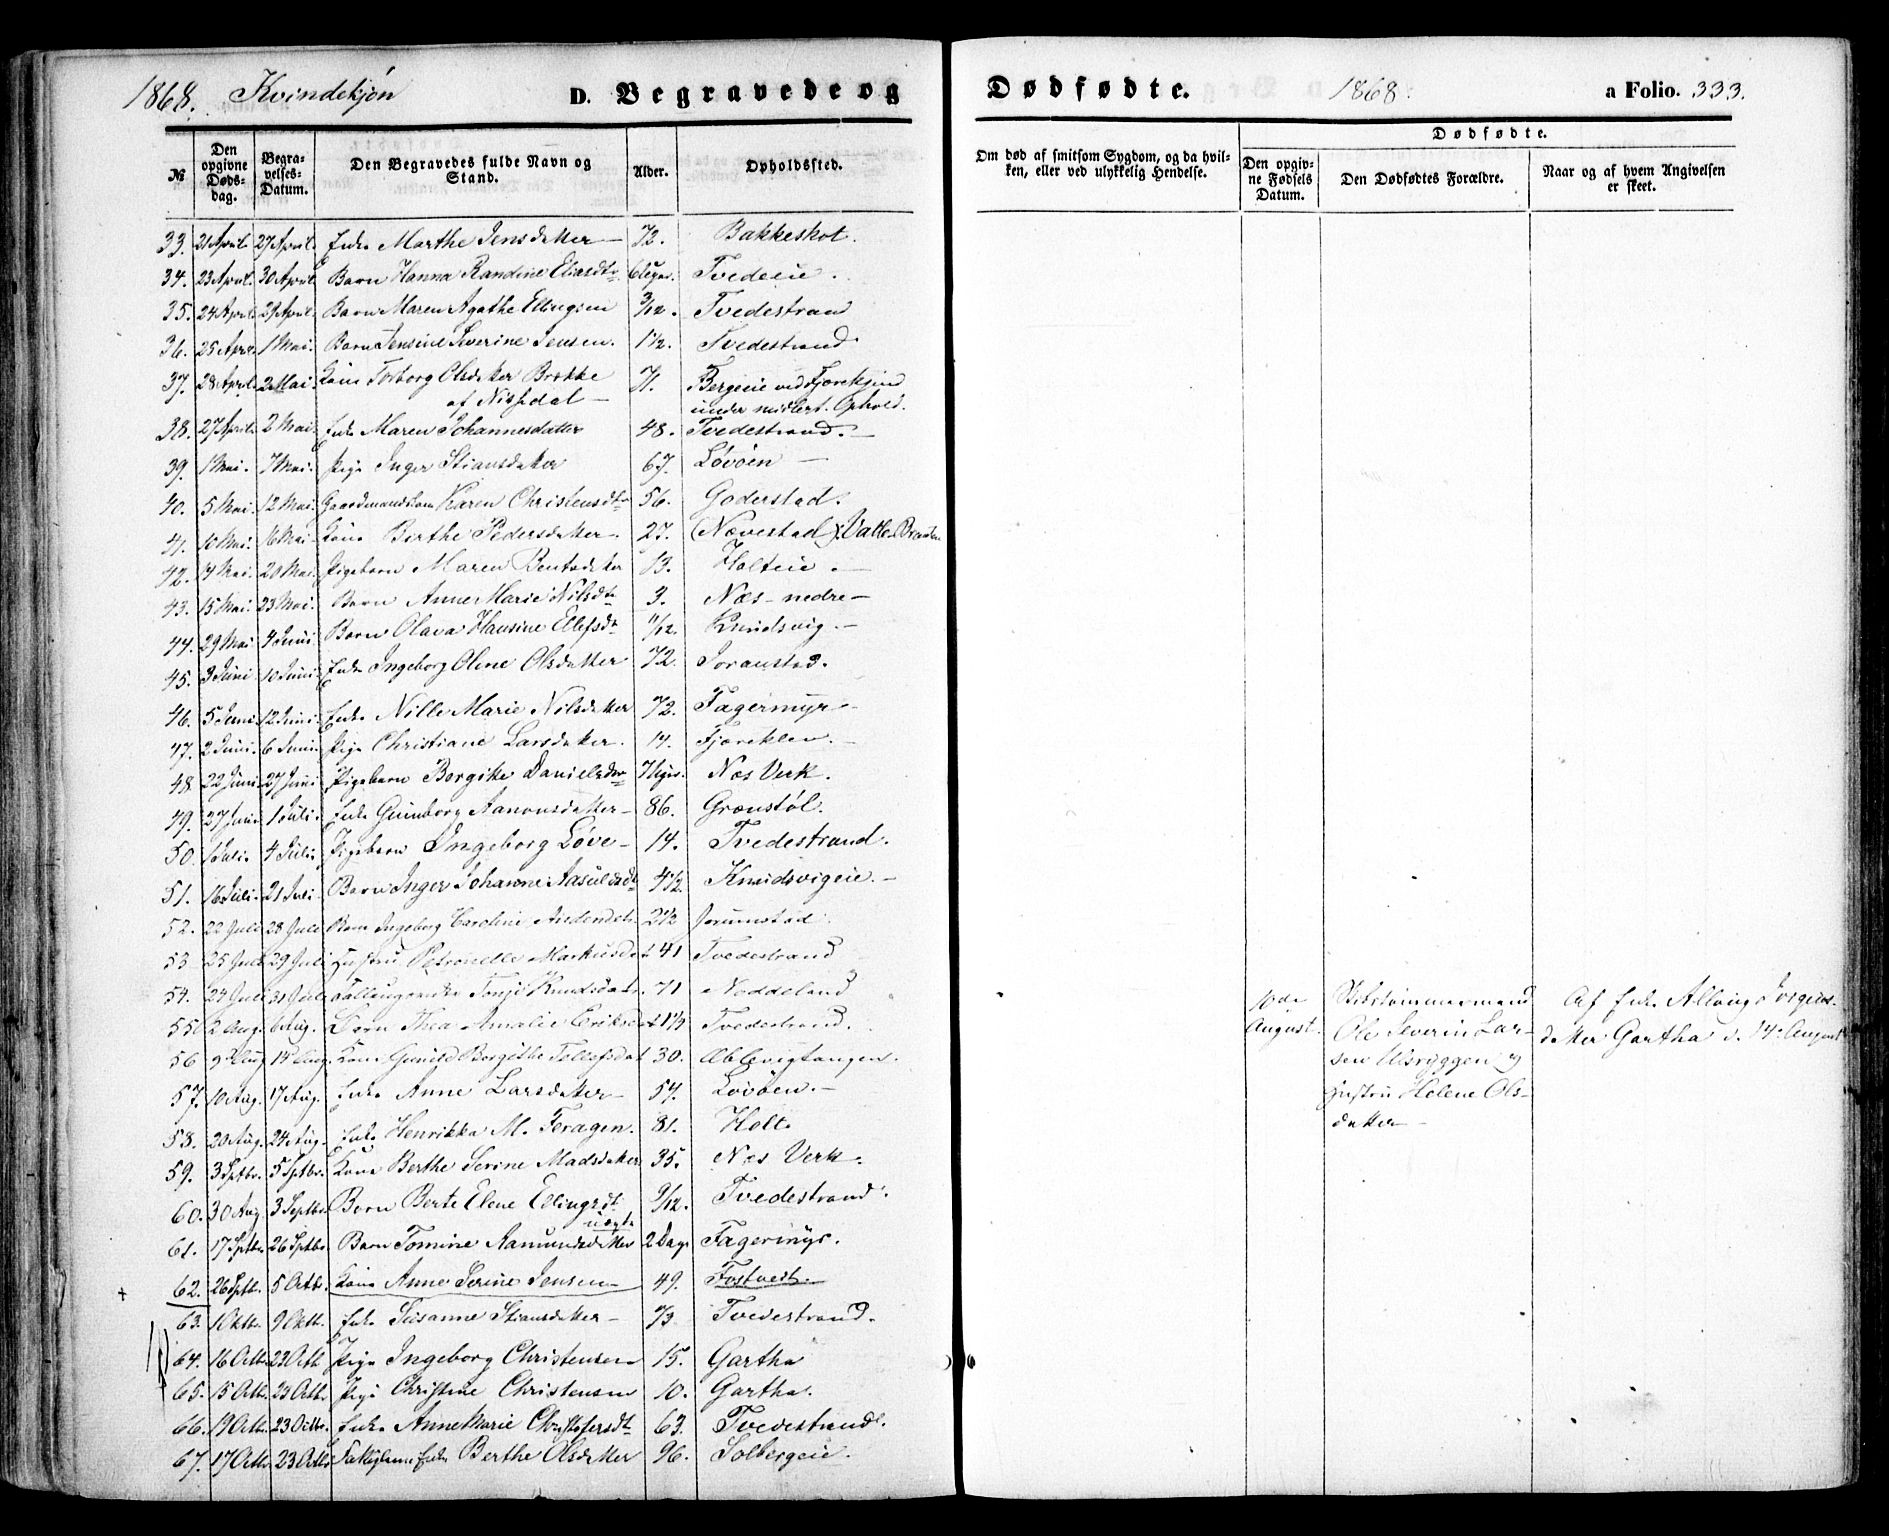 1868. Kvindekjøn D. Begravede og Dødfødte. 1868. a Folio. 333.
№ Den opgivne Døds-dag. Begra-velses-Datum. Den Begravedes fulde Navn og Stand. Alder. Opholdssted. Om død af smitsom Sygdom, og da hvil-ken, eller ved ulykkelig Hendelse. Dødfødte. Den opgiv-ne Fødsels Datum. Den Dødfødtes Forældre. Naar og af hvem Angivelsen er skeet.
33. 21 April 27 April. Enke Marthe Jensdatter 72. Bakkeskot.
34. 23 April. 30 April. Barn Hanna Randine Eliasdtr 6 Uger. Tvedeeie.
35. 24 April. 29 April. Barn Maren Agathe Ellingsen 3/12. Tvedestrand
36. 25 April 1 Mai. Barn Jensine Severine Jensen. 1 1/2. Tvedestrand
37. 28 April. 2 Mai. Kone Torborg Olsdatter Brække 71. Bergeie ved Fjærekjend
af Nissedal under midlert. Ophold.
38. 27 April. 2 Mai. Enke Maren Johannesdatter 48. Tvedestrand.
39. 1 Mai. 7 Mai. Pige Inger Stiansdatter 67. Løvøen
40. 5 Mai. 12 Mai. Gaardmandskone Karen Christensdtr 56. Goderstad.
41. 10 Mai. 16 Mai. Kone Birthe Pedersdatter. 27. (Nævestad)
42. 14 Mai. 20 Mai. Pigebarn Maren Bentsdatter 13. Holteie.
43. 15 Mai. 23 Mai. Barn Anne Marie Nilsdtr 3. Næs nedre
44. 29 Mai 4 Juni. Barn Olava Hansine Ellefsdtr 11/12. Knudsvig.
45. 3 Juni 10 Juni. Enke Ingeborg Olene Olsdatter 72. Joranstad.
46. 5 Juni. 12 Juni. Enke Nille Marie Nilsdatter 72. Fagermyr
47. 2 Juni. 6 Juni. Pige Christiane Larsdatter. 14. Fjæreklev.
48. 22 Juni. 27 Juni Pigebarn Borgike Danielsdtr 7 Uger. Næs Verk.
49. 27 Juni. 1 Juli. Enke Gunborg Aanonsdatter 86. Grønstøl.
50. 1 Juli 4 Juli Pigebarn Ingeborg Løve 14. Tvedestrand.
51. 16 Juli. 21 Juli. Barn Inger Johanne Aasulvsdtr 4 1/2. Knudsvigeie.
52. 22 Juli 28 Juli Barn Ingeborg Karoline 2 1/2 Jorunstad
53 25 Juli 29 Juli Hustru Petronelle Markusdat 41 Tvedestrand
54. 24 Juli 31 Juli Tonje Knudsdatr. 71 Noddeland
55. 2 Aug. 6 Aug. Barn Thea Amalie Eriksdat 1 1/2 Tvedestrand.
56 9 Aug 14 Aug. Kone Gunild Borgithe Tellefsdat 30. Æblevigtangen.
57. 10 Aug. 17 Aug. Enke Anne Larsdatter 54. Løvøen.
58. 20 Aug. 24 Aug. Enke Henrikka M. Feragen. 81. Holt.
59. 3 Septbr. 5 Septbr. Kone Berthe Serine Madsdatter 35. Næs Verk.
60. 30 Aug. 3 Septbr. Barn Berte Elene Ellingsdt. 9/12. Tvedestrand.
uægte
61. 17 Septbr. 26 Septbr. Barn Tomine Aamundsdatter 2 Dage Fagermyr.
62. 26 Septb. 5 Octbr. Kone Anne Serine Jensen 49. Fostvedt.
63. 1 Oktbr. 9 Oktb. Enke Susanne Stiansdatter 73 Tvedestrand.
64. 16 Octbr. 23 Octb Pige Ingeborg Christensen 15. Gartha
65. 15 Octbr. 23 Octbr Pige Christine Christensen 10. Gartha.
66. 19 Octbr. 23 Octbr. Enke Anne Marie Christofersdt 63. Tvedestrand.
67. 17 Octbr. 23 Octbr Fattiglem Enke Berthe Olsdatter 96. Solbergeie.
10de August.
Skibstømmermand
Ole Severin Lar-
sen Usryggen og
Hustru Helene Ols-
datter
Af Enke Allvig Jørgens-
datter Gartha d. 14. August